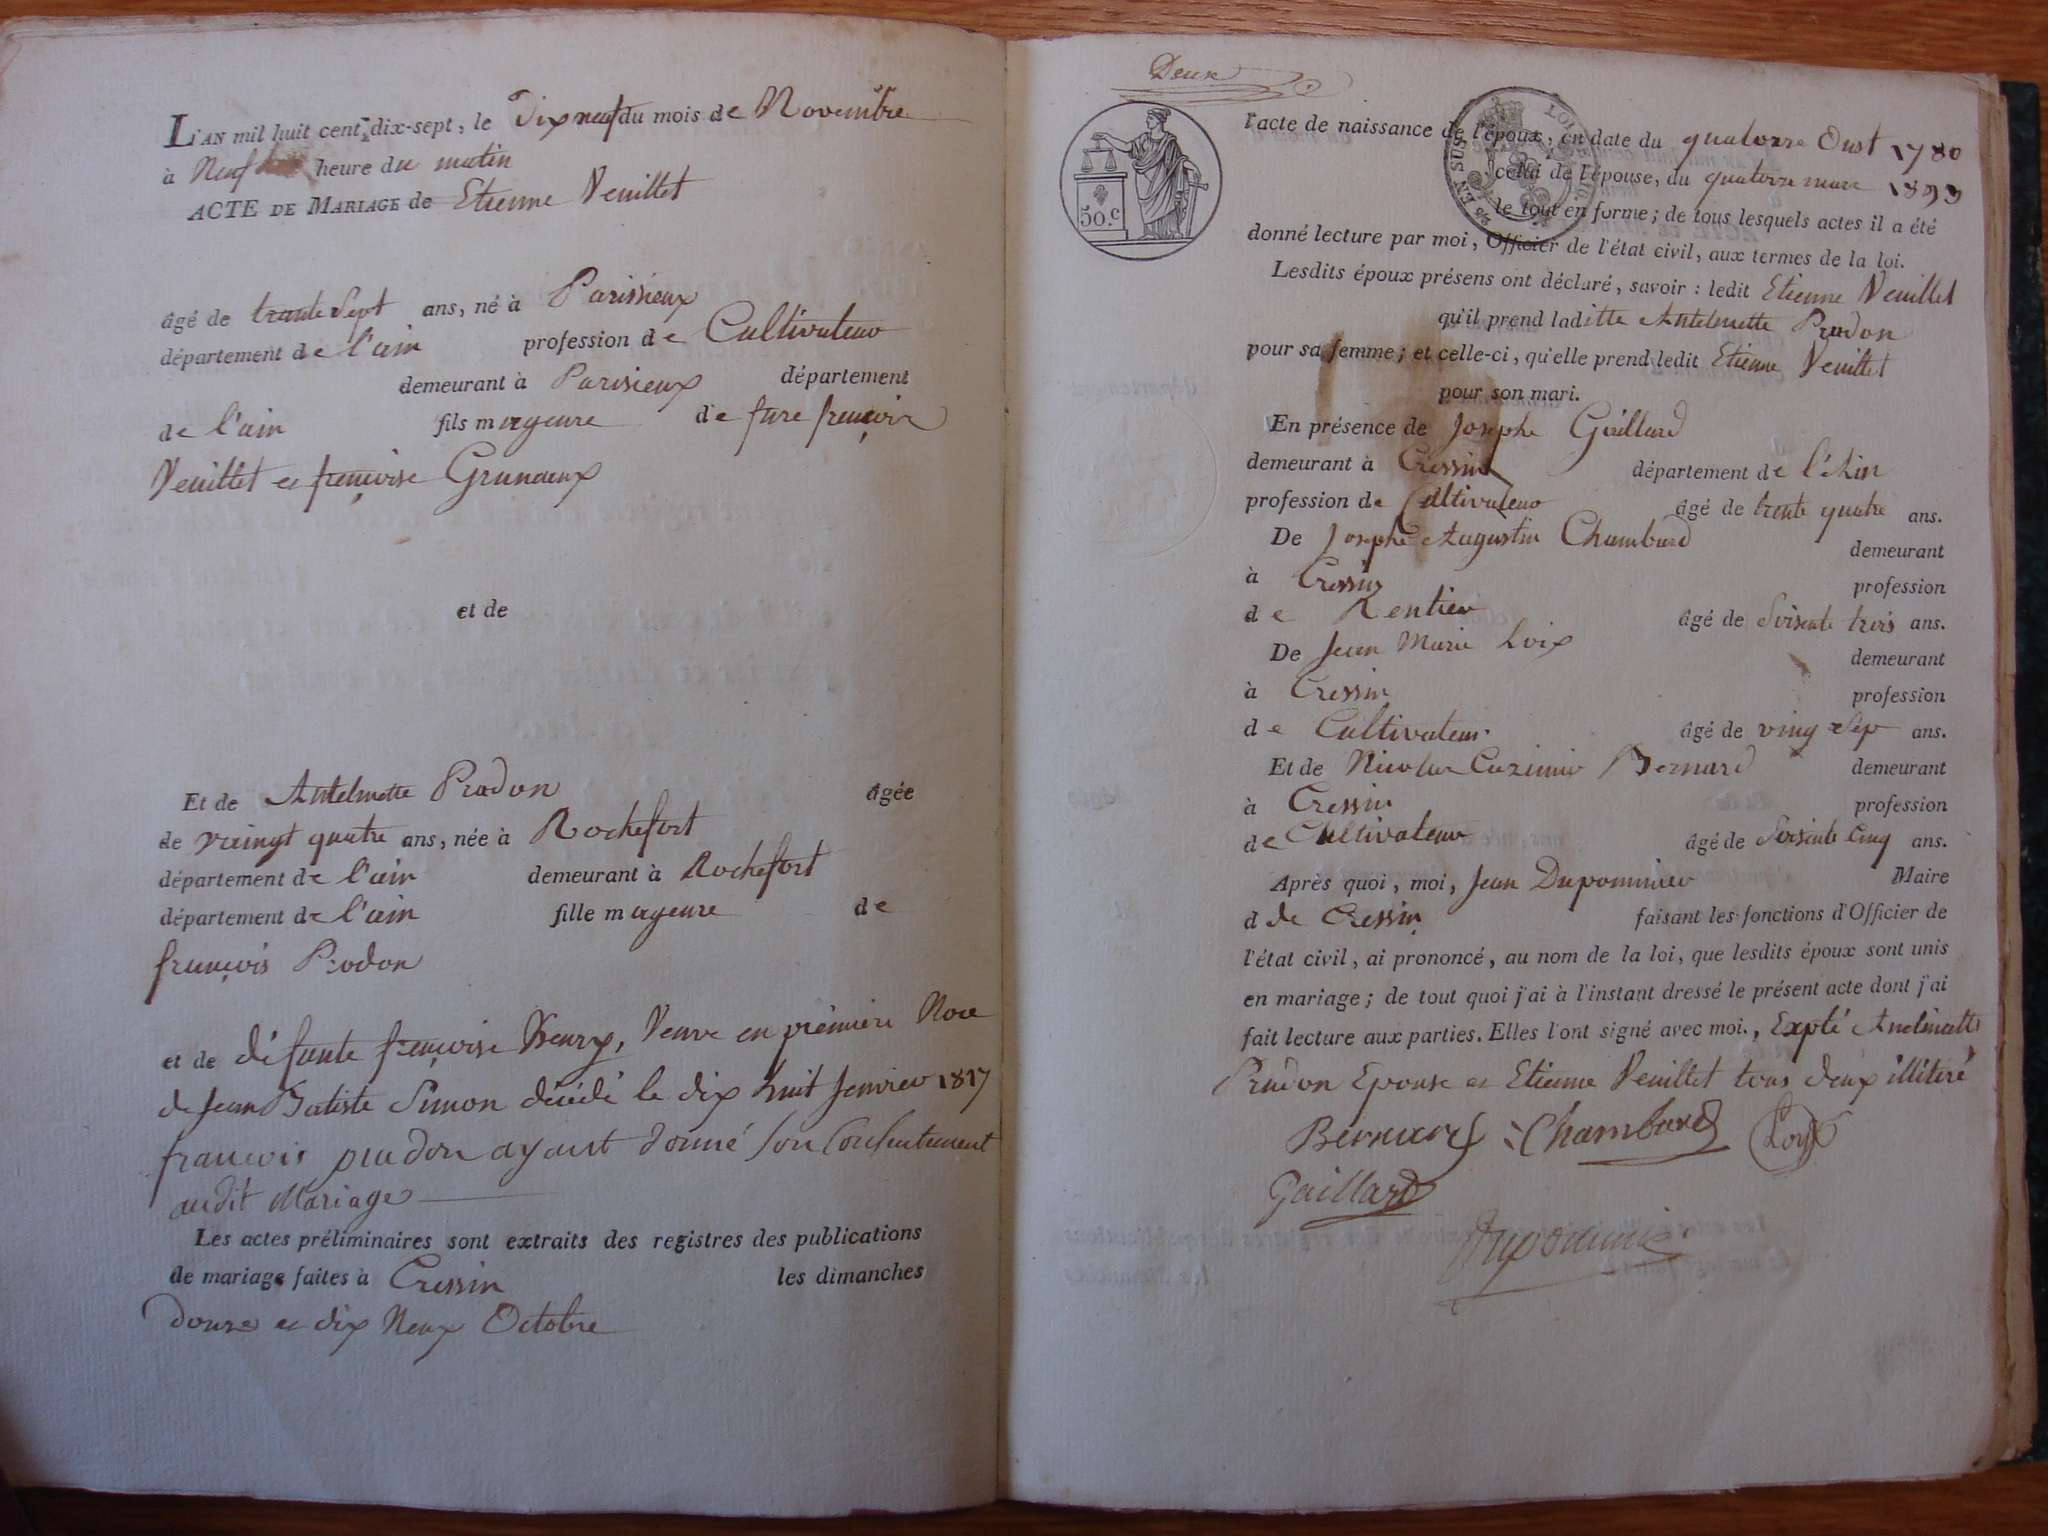 L'AN mil huit cent dix-sept, le dix neuf du mois de Novembre
à Neuf heure du matin
ACTE DE MARIAGE de Etienne Veuillet
âgé de trante Sept ans, né à Parissieux
département de l'ain profession de Cultivateur
demeurant à Parisieux département
de l'ain fils mageure de fure françois
Veuillet et françoise Grunaux
et de
Et de Antelmette Prudon âgée
de vreingt quatre ans, née à Rochefort
département de l'ain demeurant à Rochefort
département de l'ain fille mageure de
françois Prodon
et de défunte françoise Henry, Veuve en première Noce
de Jean Batiste Simon décédé le dix huit Janvier 1817
francois prudon ayant donné son Consentement
audit Mariage
Les actes préliminaires sont extraits des registres des publications
de mariage faites à Cressin les dimanches
douze et dix Neuf Octobre
Deux
50.c
EN SUS
LOI
l'acte de naissance de l'époux, en date du quatorze Oust 1780
celui de l'épouse, du quatorze mars 1893
le tout en forme; de tous lesquels actes il a été
donné lecture par moi, Officier de l'état civil, aux termes de la loi.
Lesdits époux présens ont déclaré, savoir : ledit Etienne Veuillet
qu'il prend laditte Antelmette Prudon
pour sa femme; et celle-ci, qu'elle prend ledit Etienne Veuillet
pour son mari.
En présence de Josephe Gaillard
demeurant à Cressin département de l'Ain
profession de Cultivateur âgé de trente quatre ans.
De Josephe Augustin Chambard demeurant
à Cressin profession
de Rentier âgé de Soisente trois ans.
De Jean Marie Loix demeurant
à Cressin profession
de Cultivateur âgé de ving Sep ans.
Et de Nicolas Cazimir Bernard demeurant
à Cressin profession
de Cultivateur âgé de Soisente Cinq ans.
Après quoi, moi, Jean Dupommier Maire
d de Cressin faisant les fonctions d'Officier de
l'état civil, ai prononcé, au nom de la loi, que lesdits époux sont unis
en mariage; de tout quoi j'ai à l'instant dressé le présent acte dont j'ai
fait lecture aux parties. Elles l'ont signé avec moi., Expté Antelmette
Prudon Epouse et Etienne Veuillet tous deux illitéré
Bernard Chambard Loix
Gaillard
Dupommier